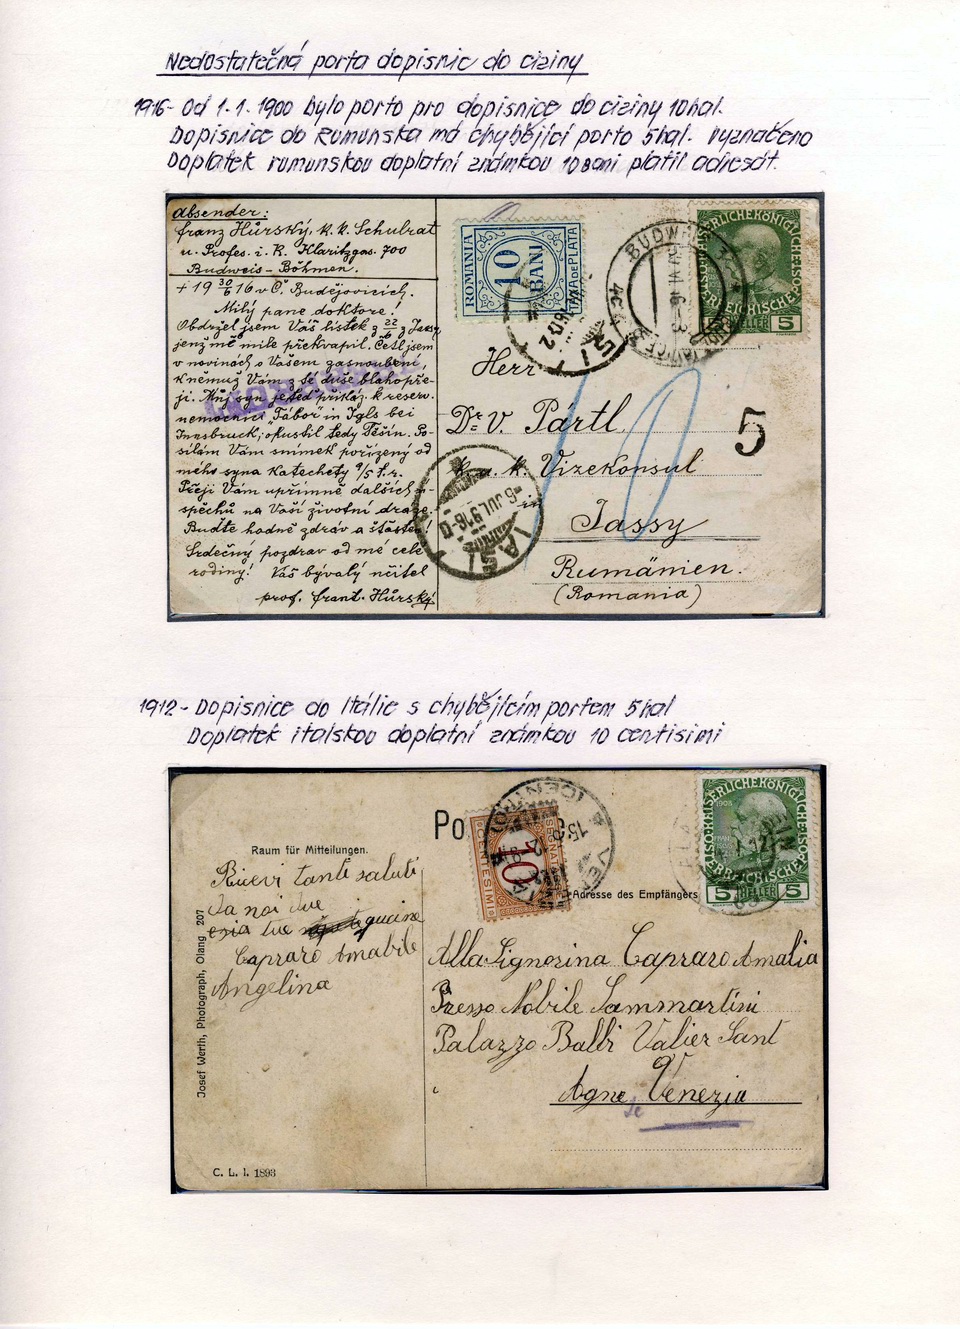 Nedostatečná porta dopisnic do ciziny
1916- Od 1.1.1900 bylo porto pro dopisnice do ciziny 10hal.
Dopisnice do Rumunska má chybějící porto 5hal. vyznačeno
Doplatek rumunskou doplatní známkou 10 bani platil adresát.
Absender:
Franz Hůrský, k. k. Schulrat
u. Profes. i. R. Klaritzgas. 700
Budweis - Böhmen.
+ 19 30/6 16 v Č. Budějovicích.
Milý pane doktore!
Obdržel jsem Váš lístek z 22/6 z Jassy,
jenž mě mile překvapil. Četl jsem
v novinách o Vašem zasnoubení,
k němuž Vám z té duše blahopře-
ji. Můj syn je teď přikáz. k reserv.
nemocnici „Tábor" in Igls bei
Innsbruck; opustil tedy Těšín. Po-
sílám Vám snímek pořízený od
mého syna katechety 9/5 t. r.
Přeji Vám upřímně dalších ú-
spěchů na Vaší životní dráze.
Buďte hodně zdráv a šťasten!
Srdečný pozdrav od mé celé
rodiny! Váš bývalý učitel
prof. Frant. Hůrský.
ROMANIA
10
BANI
TAXA DE PLATA
BUDWEIS
KAISERLICHEKÖNIGLICHE ÖSTERREICHISCHE POST
HELLER 5
10
5
Herr
Dr. V. Pártl
k. u. k. Vizekonsul
in
Jassy
Rumänien.
(Romania)
IASI
6 JUL 916
1912- Dopisnice do Itálie s chybějícím portem 5hal
Doplatek italskou doplatní známkou 10 centisimi
Po
SEGNATASSE
10
CENTESIMI
KAISERLICHE KÖNIGLICHE ÖSTERREICHISCHE POST
1908
5 HELLER 5
Raum für Mitteilungen.
Adresse des Empfängers
Ricevi tanti saluti
da noi due
Capraro Amabile
Angelina
Alla Signorina Capraro Amalia
Presso Nobile Sammartini
Palazzo Balbi Valier Sant
Agne Venezia
se
Josef Werth, Photograph, Olang 207
C. L. I. 1893